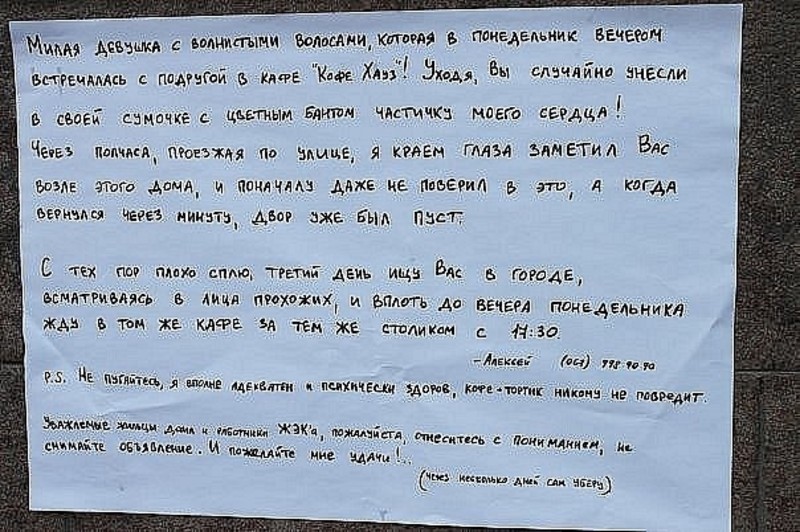 Милая девушка с волнистыми волосами, которая в понедельник вечером
встречалась с подругой в кафе "Кофе Хауз"! Уходя, Вы случайно унесли
в своей сумочке с цветным бантом частичку моего сердца!
Через полчаса, проезжая по улице, я краем глаза заметил Вас
возле этого дома, и поначалу даже не поверил в это, а когда
вернулся через минуту, двор уже был пуст.
С тех пор плохо сплю, третий день ищу Вас в городе,
всматриваясь в лица прохожих, и вплоть до вечера понедельника
жду в том же кафе за тем же столиком с 17:30.
-Алексей
P.S. Не пугайтесь, я вполне адекватен и психически здоров, кофе+тортик никому не повредит.
Уважаемые жильцы дома и работники ЖЭК'а, пожалуйста, отнеситесь с пониманием, не
снимайте объявление. И пожелайте мне удачи!..
(через несколько дней сам уберу)